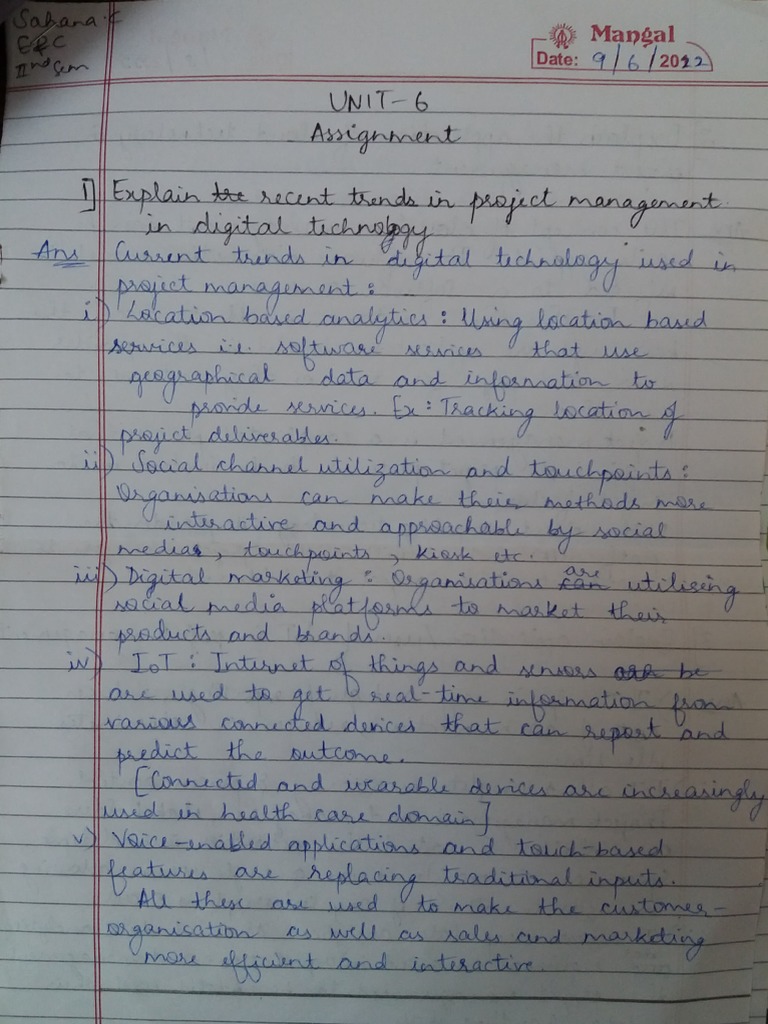 Sahana.C
E&C
IInd Sem
Mangal
Date: 9/6/2022
UNIT-6
Assignment
1] Explain the recent trends in project management
in digital technology
Ans Current trends in digital technology used in
project management :
i) Location based analytics : Using location based
services i.e. software services that use
geographical data and information to
provide services. Ex : Tracking location of
project deliverables.
ii) Social channel utilization and touchpoints :
Organisations can make their methods more
interactive and approachable by social
medias, touchpoints, kiosk etc.
iii) Digital marketing : Organisations can are utilising
social media platforms to market their
products and brands.
iv) IoT : Internet of things and sensors be
are used to get real-time information from
various connected devices that can report and
predict the outcome.
[Connected and wearable devices are increasingly
used in health care domain]
v) Voice-enabled applications and touch-based
features are replacing traditional inputs.
All these are used to make the customer-
organisation as well as sales and marketing
more efficient and interactive.